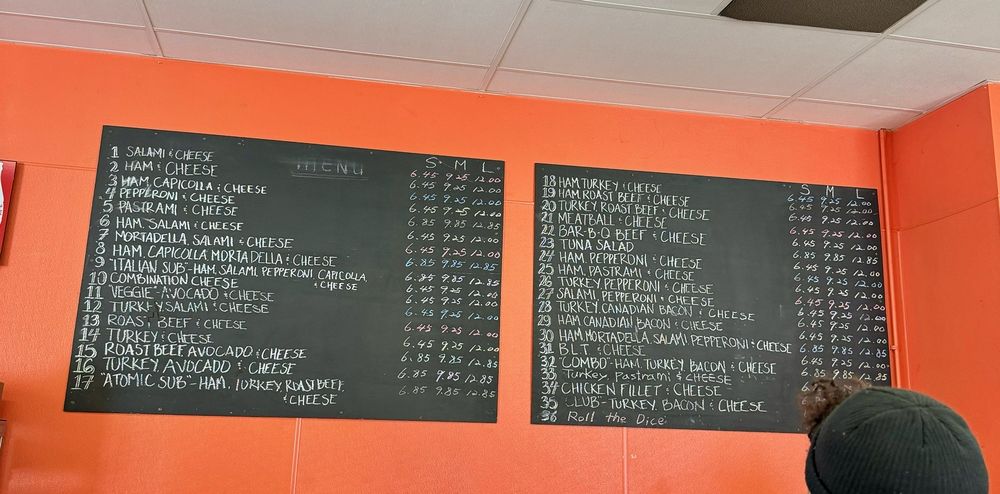 MENU
S M L
1 SALAMI & CHEESE 6.45 9.25 12.00
2 HAM & CHEESE 6.45 9.25 12.00
3 HAM, CAPICOLLA & CHEESE 6.45 9.25 12.00
4 PEPPERONI & CHEESE 6.45 9.25 12.00
5 PASTRAMI & CHEESE 6.85 9.85 12.85
6 HAM, SALAMI & CHEESE 6.45 9.25 12.00
7 MORTADELLA, SALAMI & CHEESE 6.45 9.25 12.00
8 HAM, CAPICOLLA MORTADELLA & CHEESE 6.85 9.85 12.85
9 ITALIAN SUB-HAM, SALAMI, PEPPERONI, CAPICOLLA, 6.85 9.85 12.85
& CHEESE
10 COMBINATION CHEESE 6.45 9.25 12.00
11 VEGGIE-AVOCADO & CHEESE 6.45 9.25 12.00
12 TURKEY, SALAMI & CHEESE 6.45 9.25 12.00
13 ROAST BEEF & CHEESE 6.45 9.25 12.00
14 TURKEY & CHEESE 6.45 9.25 12.00
15 ROAST BEEF AVOCADO & CHEESE 6.85 9.85 12.85
16 TURKEY, AVOCADO & CHEESE 6.85 9.85 12.85
17 "ATOMIC SUB"-HAM, TURKEY, ROAST BEEF, 6.85 9.85 12.85
& CHEESE
S M L
18 HAM, TURKEY & CHEESE 6.45 9.25 12.00
19 HAM, ROAST BEEF & CHEESE 6.45 9.25 12.00
20 TURKEY, ROAST BEEF & CHEESE 6.45 9.25 12.00
21 MEATBALL & CHEESE 6.45 9.25 12.00
22 BAR-B-Q BEEF & CHEESE 6.85 9.85 12.85
23 TUNA SALAD
24 HAM, PEPPERONI & CHEESE
25 HAM, PASTRAMI & CHEESE
26 TURKEY, PEPPERONI & CHEESE
27 SALAMI, PEPPERONI & CHEESE
28 TURKEY, CANADIAN BACON & CHEESE
29 HAM, CANADIAN BACON & CHEESE
30 HAM, MORTADELLA, SALAMI, PEPPERONI & CHEESE
31 B.L.T. & CHEESE
32 COMBO-HAM, TURKEY, BACON & CHEESE
33 Turkey, Pastrami & CHEESE
34 CHICKEN FILLET & CHEESE
35 "CLUB"-TURKEY, BACON & CHEESE
36 Roll the Dice